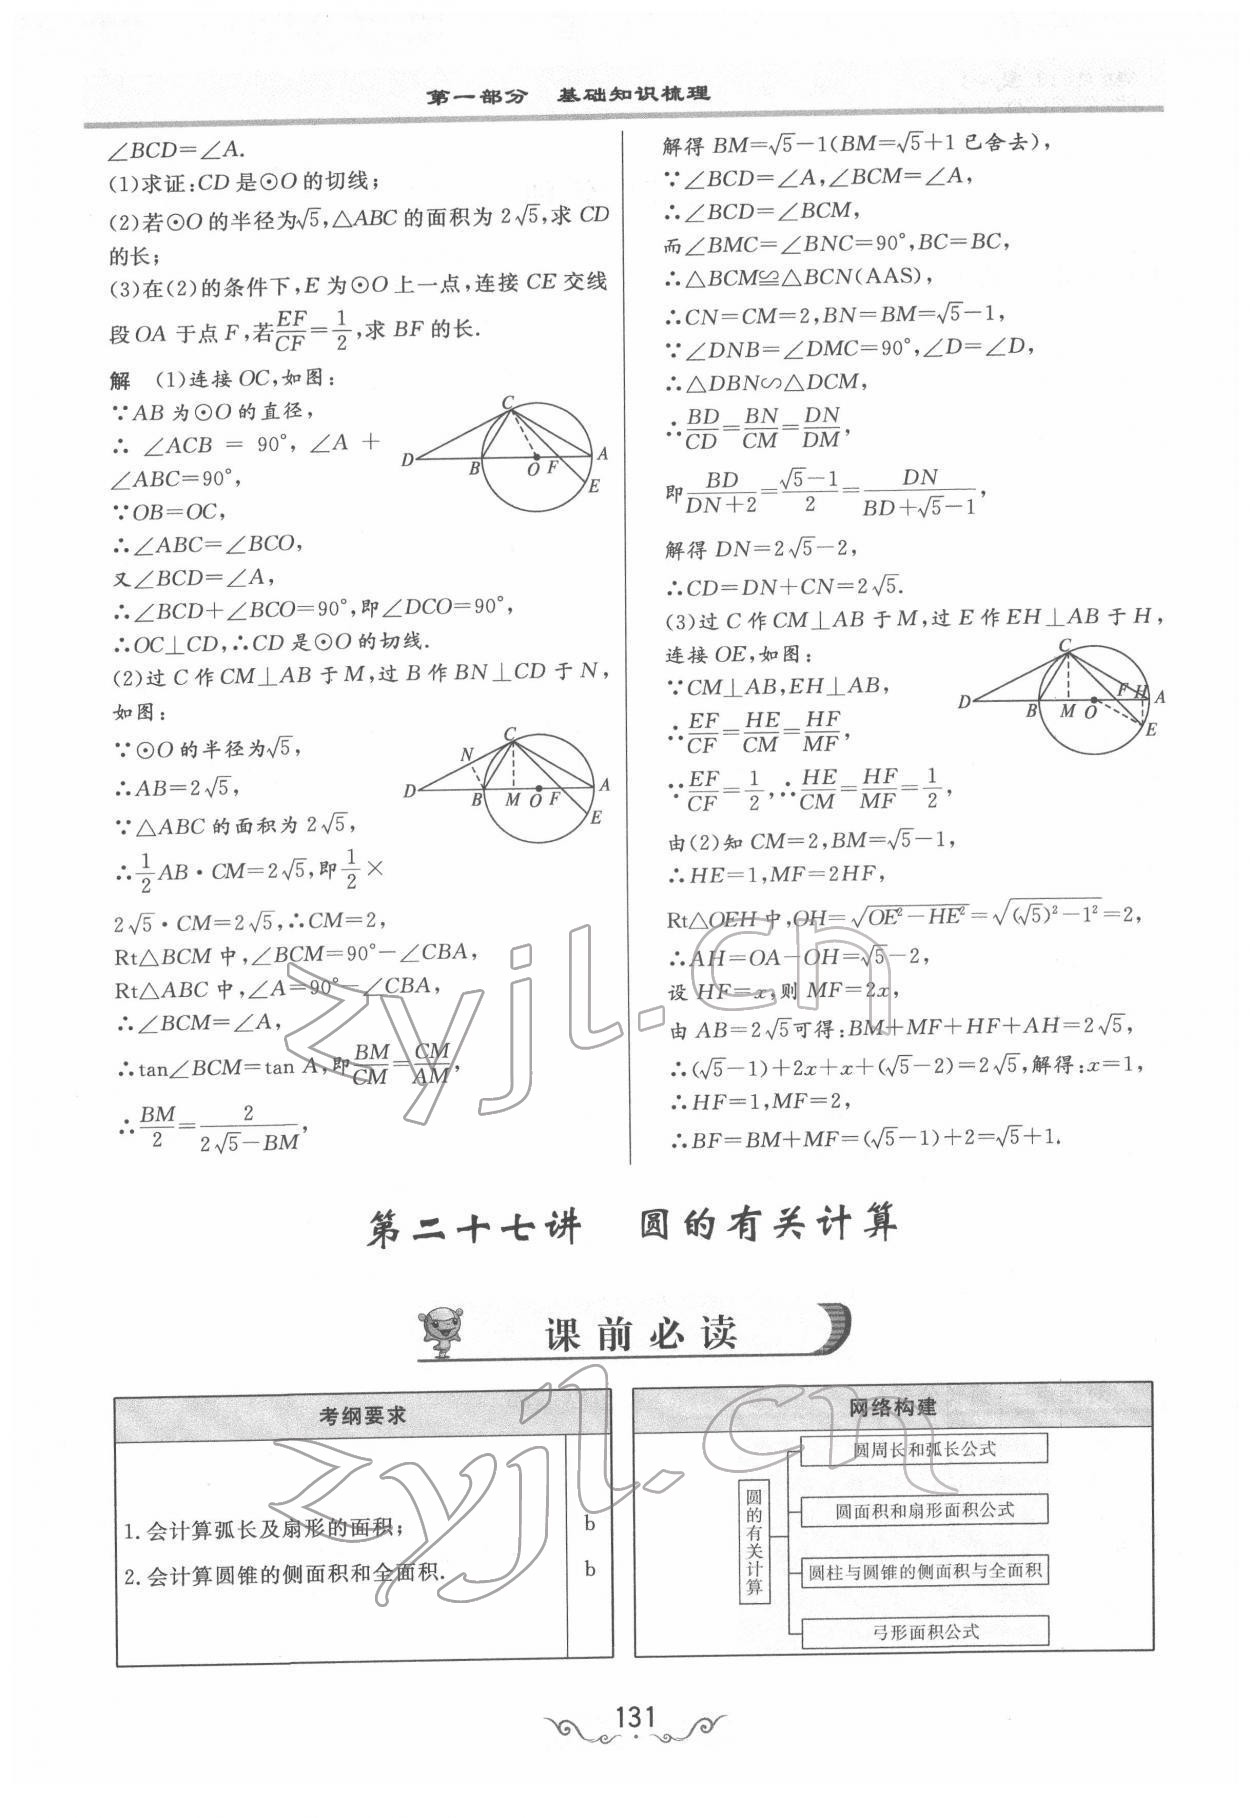 第一部分 基础知识梳理
∠BCD=∠A.
(1)求证:CD是⊙O的切线;
(2)若⊙O的半径为√5,△ABC的面积为2√5,求CD
的长;
(3)在(2)的条件下,E为⊙O上一点,连接CE交线
段OA于点F,若EF/CF=1/2,求BF的长.
解 (1)连接OC,如图:
∵AB为⊙O的直径,
∴∠ACB = 90°,∠A +
∠ABC=90°,
∵OB=OC,
∴∠ABC=∠BCO,
又∠BCD=∠A,
∴∠BCD+∠BCO=90°,即∠DCO=90°,
∴OC⊥CD,∴CD是⊙O的切线.
C
D
B
O
F
A
E
(2)过C作CM⊥AB于M,过B作BN⊥CD于N,
如图:
∵⊙O的半径为√5,
∴AB=2√5,
∵△ABC的面积为2√5,
∴1/2AB·CM=2√5,即1/2×
2√5·CM=2√5,∴CM=2,
N
C
D
B
M
O
F
A
E
Rt△BCM中,∠BCM=90°-∠CBA,
Rt△ABC中,∠A=90°-∠CBA,
∴∠BCM=∠A,
∴tan∠BCM=tan A,即BM/CM=CM/AM,
∴BM/2=2/(2√5-BM),
解得BM=√5-1(BM=√5+1已舍去),
∵∠BCD=∠A,∠BCM=∠A,
∴∠BCD=∠BCM,
而∠BMC=∠BNC=90°,BC=BC,
∴△BCM≌△BCN(AAS),
∴CN=CM=2,BN=BM=√5-1,
∵∠DNB=∠DMC=90°,∠D=∠D,
∴△DBN∽△DCM,
∴BD/CD=BN/CM=DN/DM,
即BD/(DN+2)=(√5-1)/2=DN/(BD+√5-1),
解得DN=2√5-2,
∴CD=DN+CN=2√5.
(3)过C作CM⊥AB于M,过E作EH⊥AB于H,
连接OE,如图:
∵CM⊥AB,EH⊥AB,
∴EF/CF=HE/CM=HF/MF,
∵EF/CF=1/2,∴HE/CM=HF/MF=1/2,
C
D
B
M
O
F
H
A
E
由(2)知CM=2,BM=√5-1,
∴HE=1,MF=2HF,
Rt△OEH中,OH=√(OE²-HE²)=√((√5)²-1²)=2,
∴AH=OA-OH=√5-2,
设HF=x,则MF=2x,
由AB=2√5可得:BM+MF+HF+AH=2√5,
∴(√5-1)+2x+x+(√5-2)=2√5,解得:x=1,
∴HF=1,MF=2,
∴BF=BM+MF=(√5-1)+2=√5+1.
第二十七讲 圆的有关计算
课前必读
考纲要求
1.会计算弧长及扇形的面积; b
2.会计算圆锥的侧面积和全面积. b
网络构建
圆的有关计算
圆周长和弧长公式
圆面积和扇形面积公式
圆柱与圆锥的侧面积与全面积
弓形面积公式
131
zyjl.cn
zyjl.cn